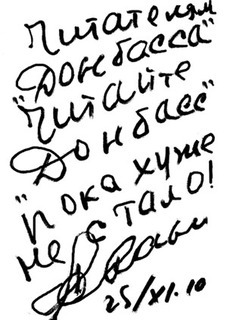 Читателям
Донбасса"
"Читайте
Донбасс"
"Пока хуже
не стало!
25/XI.10